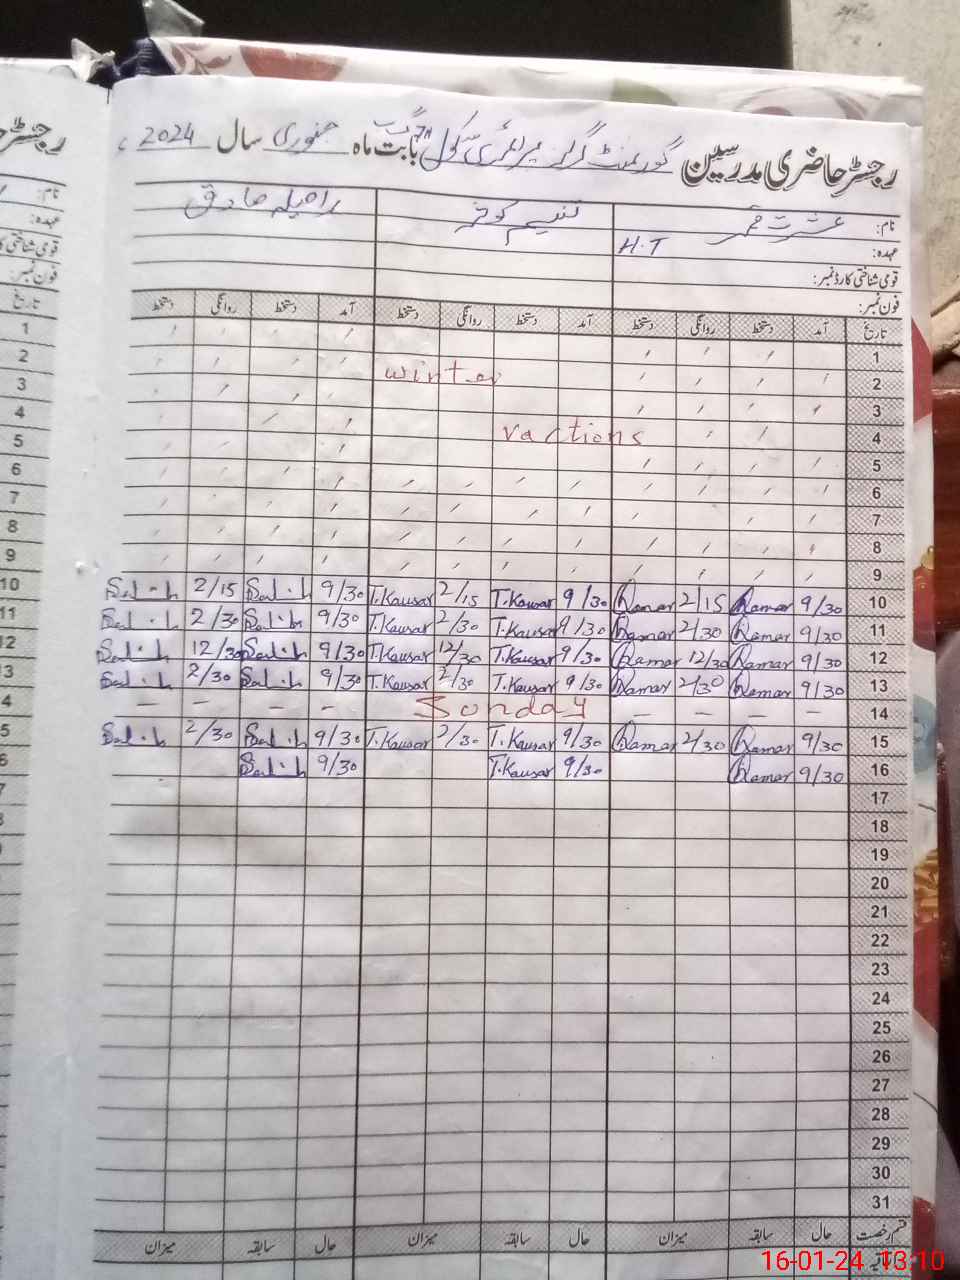 رجسٹر حاضری مدرسین گورنمنٹ گرلز پرائمری سکول بابت ماہ جنوری سال 2024ء
نام: عشرت قمر تسنیم کوثر راحیلہ صادق
عہدہ: H.T
قومی شناختی کارڈ نمبر:
فون نمبر:
تاریخ آمد دستخط روانگی دستخط آمد دستخط روانگی دستخط آمد دستخط روانگی دستخط
1
2 winter
3
4 vactions
5
6
7
8
9
10 9/30 Qamar 2/15 Qamar 9/30 T.Kausar 2/15 T.Kausar 9/30 2/15
11 9/30 Qamar 2/30 Qamar 9/30 T.Kausar 2/30 T.Kausar 9/30 2/30
12 9/30 Qamar 12/30 Qamar 9/30 T.Kausar 12/30 T.Kausar 9/30 12/30
13 9/30 Qamar 2/30 Qamar 9/30 T.Kausar 2/30 T.Kausar 9/30 2/30
14 — — — Sunday — — — —
15 9/30 Qamar 2/30 Qamar 9/30 T.Kausar 2/30 T.Kausar 9/30 2/30
16 9/30 Qamar 9/30 T.Kausar 9/30
17
18
19
20
21
22
23
24
25
26
27
28
29
30
31
قسم رخصت حال سابقہ میزان حال سابقہ میزان حال سابقہ میزان
16-01-24 13:10
نام:
عہدہ:
قومی شناختی
فون نمبر:
تاریخ
1
2
3
4
5
6
7
8
9
10
11
12
13